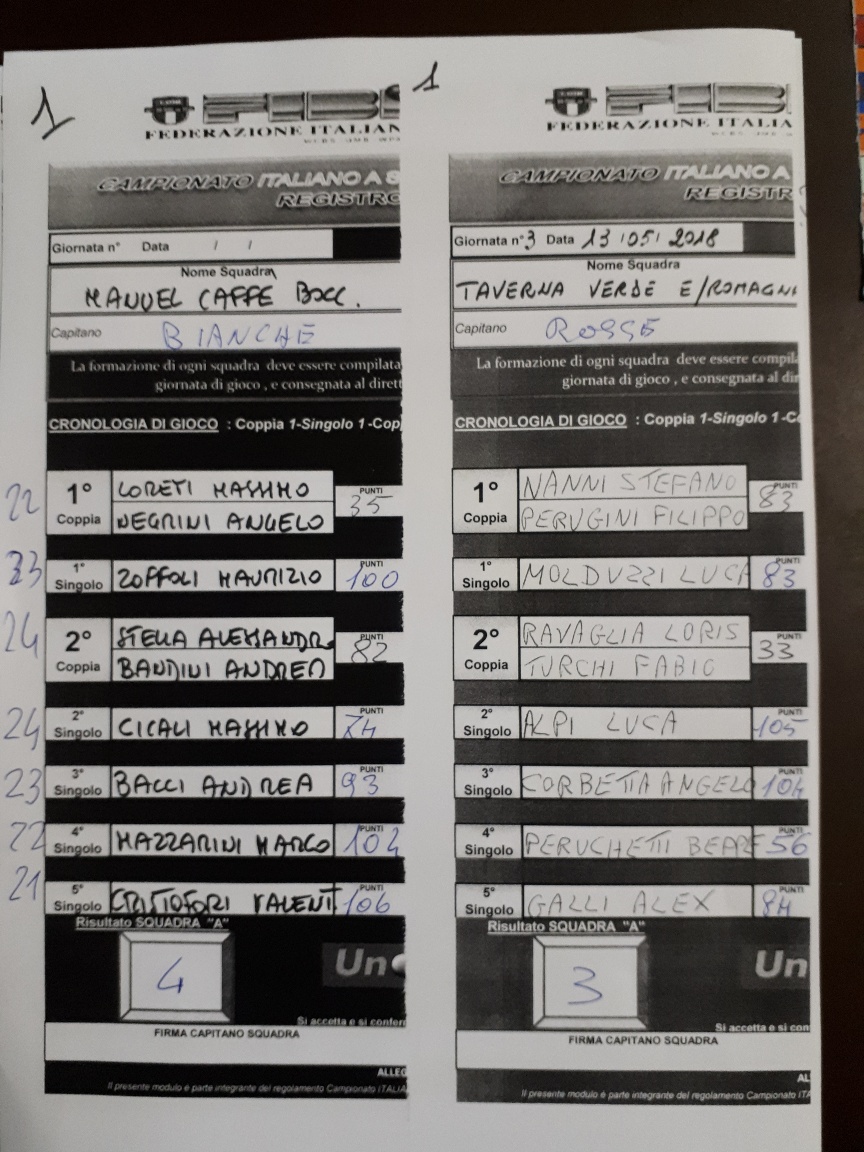 1
FIBS
FEDERAZIONE ITALIAN
CAMPIONATO ITALIANO A S
REGISTRO
Giornata n° Data / /
Nome Squadra
MANUEL CAFFE BOCC.
Capitano BIANCHE
La formazione di ogni squadra deve essere compilata
giornata di gioco , e consegnata al dirett
CRONOLOGIA DI GIOCO : Coppia 1-Singolo 1 -Cop
22 1° Coppia LORETI MASSIMO PUNTI 35
NEGRINI ANGELO
23 1° Singolo ZOFFOLI MAURIZIO PUNTI 100
24 2° Coppia STELLA ALESSANDR. PUNTI 82
BANDINI ANDREA
24 2° Singolo CICALI MASSIMO PUNTI 74
23 3° Singolo BACCI ANDREA PUNTI 93
22 4° Singolo MAZZARINI MARCO PUNTI 102
21 5° Singolo CRISTOFORI VALENT PUNTI 106
Risultato SQUADRA "A"
4
Un
Si accetta e si confer
FIRMA CAPITANO SQUADRA
ALLEG
Il presente modulo è parte integrante del regolamento Campionato ITALIA
1
FIBS
FEDERAZIONE ITALIA
CAMPIONATO ITALIANO A
REGISTR
Giornata n° 3 Data 13/05/2018
Nome Squadra
TAVERNA VERDE E/ROMAGN
Capitano ROSSE
La formazione di ogni squadra deve essere compil
giornata di gioco , e consegnata al dir
CRONOLOGIA DI GIOCO : Coppia 1-Singolo 1 -C
1° Coppia NANNI STEFANO PUNTI 83
PERUGINI FILIPPO
1° Singolo MOLDUZZI LUCA PUNTI 83
2° Coppia RAVAGLIA LORIS PUNTI 33
TURCHI FABIO
2° Singolo ALPI LUCA PUNTI 105
3° Singolo CORBETTA ANGELO PUNTI 104
4° Singolo PERUCHETTI BEPPE PUNTI 56
5° Singolo GALLI ALEX PUNTI 84
Risultato SQUADRA "A"
3
Un
Si accetta e si con
FIRMA CAPITANO SQUADRA
AL
Il presente modulo è parte integrante del regolamento Campionato ITA